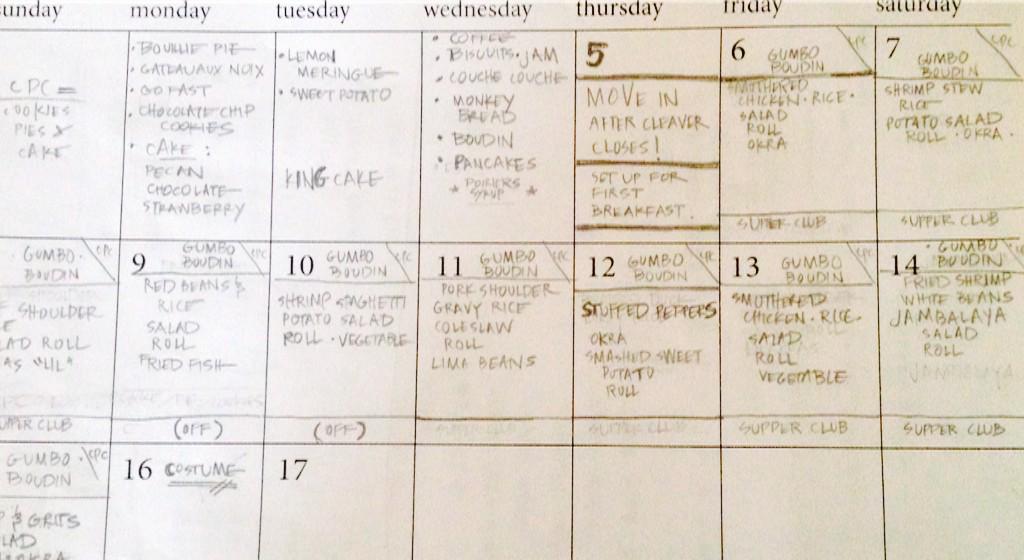 sunday monday tuesday wednesday thursday friday saturday
CPC
COOKIES
PIES &
CAKE
· BOUILLIE PIE
· GATEAUAUX NOIX
· GO FAST
· CHOCOLATE CHIP
COOKIES
· CAKE :
PECAN
CHOCOLATE
STRAWBERRY
· LEMON
MERINGUE
· SWEET POTATO
KING CAKE
· COFFEE
· BISCUITS · JAM
· COUCHE COUCHE
· MONKEY
BREAD
· BOUDIN
· PANCAKES
* POIRIERS *
SYRUP
5
MOVE IN
AFTER CLEAVER
CLOSES!
SET UP FOR
FIRST
BREAKFAST.
6 GUMBO CPC
BOUDIN
SMOTHERED
CHICKEN · RICE ·
SALAD
ROLL
OKRA
SUPPER CLUB
7 GUMBO CPC
BOUDIN
SHRIMP STEW
RICE
POTATO SALAD
ROLL · OKRA ·
SUPPER CLUB
· GUMBO · CPC
BOUDIN
SHOULDER
ROLL
"LIL"
CLUB
9 GUMBO CPC
BOUDIN
RED BEANS &
RICE
SALAD
ROLL
FRIED FISH
(OFF)
10 GUMBO CPC
BOUDIN
SHRIMP SPAGHETTI
POTATO SALAD
ROLL · VEGETABLE
(OFF)
11 GUMBO CPC
BOUDIN
PORK SHOULDER
GRAVY RICE
COLESLAW
ROLL
LIMA BEANS
SUPPER CLUB
12 GUMBO CPC
BOUDIN
STUFFED PEPPERS
OKRA
SMASHED SWEET
POTATO
ROLL
SUPPER CLUB
13 GUMBO CPC
BOUDIN
SMOTHERED
CHICKEN · RICE ·
SALAD
ROLL
VEGETABLE
SUPPER CLUB
14 · GUMBO · CPC
BOUDIN
FRIED SHRIMP
WHITE BEANS
JAMBALAYA
SALAD
ROLL
JAMBALAYA
SUPPER CLUB
GUMBO · CPC
BOUDIN
& GRITS
16 COSTUME
17